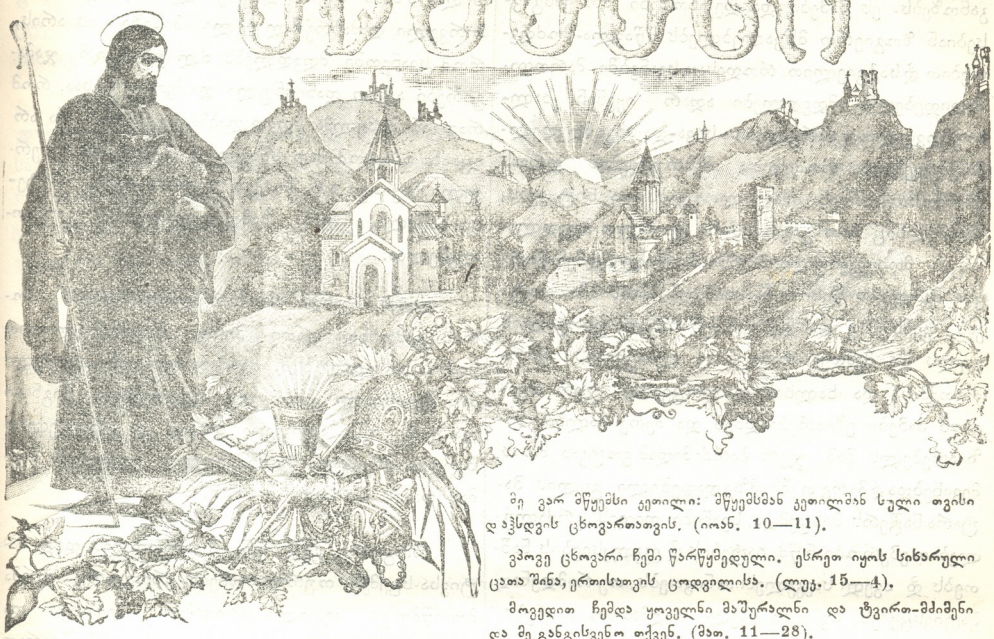 მწყემსი
მე ვარ მწყემსი კეთილი: მწყემსმან კეთილმან სული თვისი
დაჰსდვის ცხოვართათვის. (იოან. 10—11).
ვჰოვე ცხოვარი ჩემი წარწყმედული. ესრეთ იყოს სიხარული
ცათა შინა, ერთისათვის ცოდვილისა. (ლუკ. 15—4).
მოვედით ჩემდა ყოველნი მაშურალნი და ტვირთ-მძიმენი
და მე განგისვენო თქვენ. (მათ. 11—28).